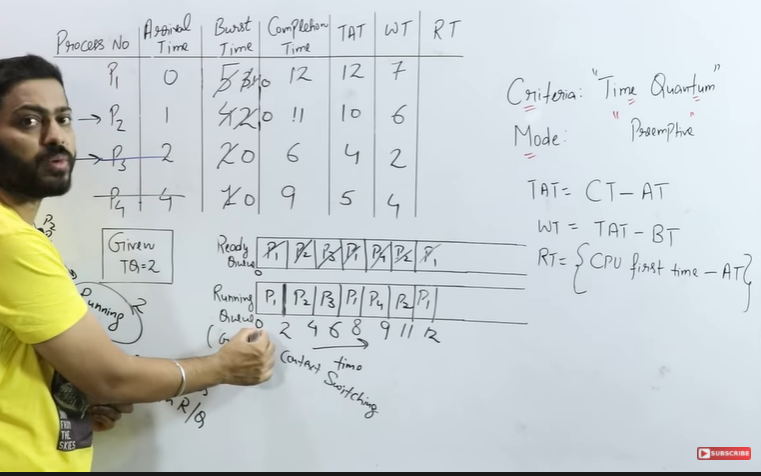 Process No Arrival Time Burst Time Completion Time TAT WT RT
P1 0 5 3 1 0 12 12 7
→ P2 1 4 2 0 11 10 6
→ P3 2 2 0 6 4 2
P4 4 1 0 9 5 4
Criteria: "Time Quantum"
Mode: "Preemptive"
TAT = CT - AT
WT = TAT - BT
RT = {CPU first time - AT}
Given
TQ=2
Ready Queue P1 P2 P3 P1 P4 P2 P1
0
Running Queue P1 P2 P3 P1 P4 P2 P1
0 2 4 6 8 9 11 12
Context time
Switching
Running
R/Q
FROM
THE
SKIES
SUBSCRIBE